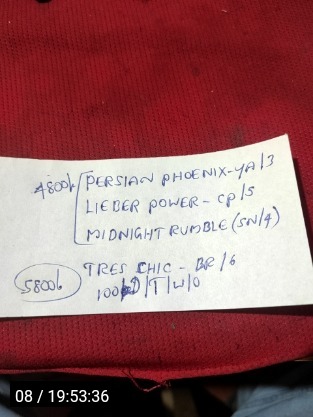 4800/- PERSIAN PHOENIX-YA/3
LIEBER POWER - CP/5
MIDNIGHT RUMBLE (SN/4)
5800/- TRES CHIC - BR/6
100 D/T/W/O
08 / 19:53:36